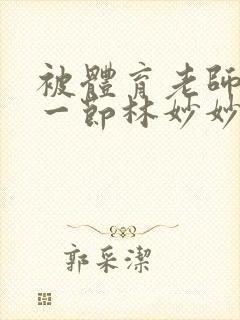 被體育老師
一節林妙妙
郭采潔